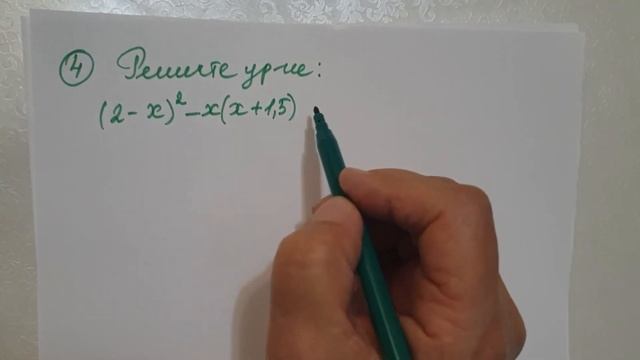 ④ Решите ур-ие:
(2-x)²-x(x+1,5)